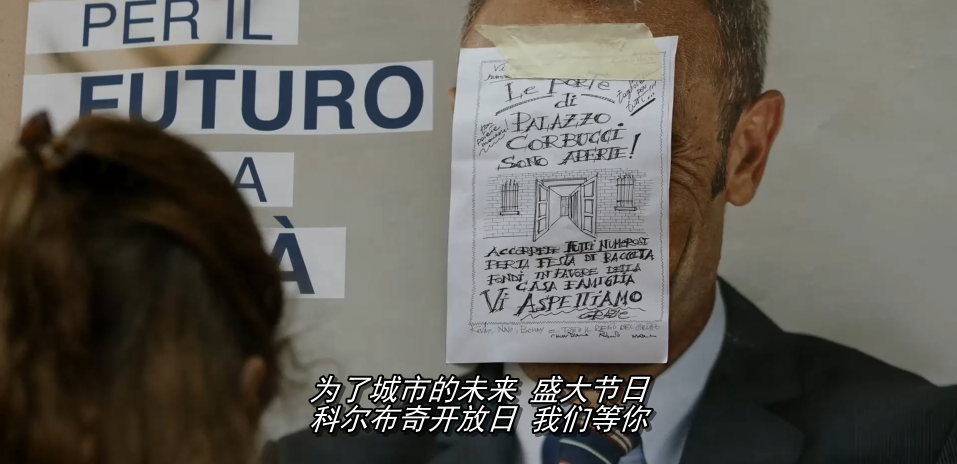 PER IL
FUTURO
A
À
Le Porte
di
PALAZZO
CORBUCCI
SONO APERTE!
ACCORRETE TUTTI NUMEROSI
PER LA FESTA DI RACCOLTA
FONDI IN FAVORE DELLA
CASA FAMIGLIA
Vi ASPETTIAMO
GRAZIE
为了城市的未来 盛大节日
科尔布奇开放日 我们等你